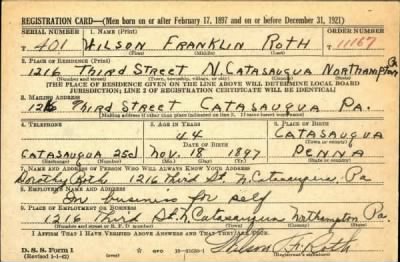 REGISTRATION CARD—(Men born on or after February 17, 1897 and on or before December 31, 1921)
SERIAL NUMBER 1. NAME (Print) ORDER NUMBER
T 401 WILSON FRANKLIN ROTH 11167
(First) (Middle) (Last)
2. PLACE OF RESIDENCE (Print)
1216 THIRD STREET N. CATASAUQUA NORTHAMPTON Pa
(Number and street) (Town, township, village, or city) (County) (State)
[THE PLACE OF RESIDENCE GIVEN ON THE LINE ABOVE WILL DETERMINE LOCAL BOARD
JURISDICTION; LINE 2 OF REGISTRATION CERTIFICATE WILL BE IDENTICAL]
3. MAILING ADDRESS
THIRD STREET CATASAUQUA PA.
[Mailing address if other than place indicated on line 2. If same insert word same]
4. TELEPHONE 5. AGE IN YEARS 6. PLACE OF BIRTH
44 CATASAUQUA
DATE OF BIRTH (Town or county)
CATASAUQUA NOV. 18 1897 PENNA
(Exchange) (Number) (Mo.) (Day) (Yr.) (State or country)
7. NAME AND ADDRESS OF PERSON WHO WILL ALWAYS KNOW YOUR ADDRESS
Dorothy Roth 1216 Third St. N. Catasauqua, Pa
8. EMPLOYER'S NAME AND ADDRESS
In business for self
9. PLACE OF EMPLOYMENT OR BUSINESS
1216 Third St. N. Catasauqua Northampton Pa.
(Number and street or R. F. D. number) (Town) (County) (State)
I AFFIRM THAT I HAVE VERIFIED ABOVE ANSWERS AND THAT THEY ARE TRUE.
D. S. S. Form 1
(Revised 1-1-42) GPO Wilson F. Roth
(Registrant's signature)